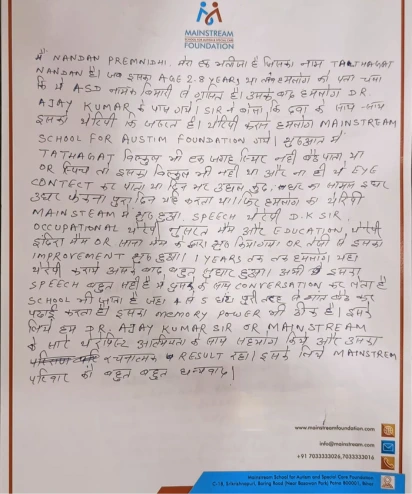 MAINSTREAM
SCHOOL FOR AUTISM & SPECIAL CARE
FOUNDATION
मैं NANDAN PREMNIDHI. मेरा एक भतीजा है जिसका नाम TATHAGAT
NANDAN है। जब इसका AGE 2.8 YEARS था तब हमलोग को पता चला
कि ये ASD नामक बिमारी से ग्रसित है। उसके बाद हमलोग DR.
AJAY KUMAR के पास गये। SIR ने बोला कि दवा के साथ-साथ
इसको थेरेपी कि जरूरत है। थेरेपी कराने हमलोग MAINSTREAM
SCHOOL FOR AUSTIM FOUNDATION गये। शुरुआत में
TATHAGAT बिल्कुल भी एक जगह स्थिर नहीं बैठ पाता था
OR स्पिच तो इसका बिल्कुल भी नहीं था और ना ही ये EYE
CONTECT कर पाता था दिन भर उछल कुद, सामान इधर
उधर फेकना पुरा दिन यह करता था। फिर हमलोग का थेरेपी
MAINSTEAM में शुरु हुआ, SPEECH थेरेपी D.K SIR,
OCCUPATIONAL थेरेपी नुसरत मैम और EDUCATION थेरेपी
इंदिरा मैम OR मैम के द्वारा शुरु किया गया। OR तभी से इसका
IMPROVEMENT शुरु हुआ। 1 YEARS तक हमलोग यहा
थेरेपी कराये उसके बाद बहुत सुधार हुआ। अभी इसका
SPEECH बहुत सही है ये सबके साथ CONVERSATION कर लेता है
SCHOOL भी जाता है जहा 4 से 5 घंटा पुरी तरह से शांत बैठ कर
पढाई करता है। इसका MEMORY POWER भी ठीक है। इसके
लिये हम DR. AJAY KUMAR SIR OR MAINSTREAM
के सारे थेरेपिस्ट आत्मियता के साथ सहयोग किये और उसका
रचनात्मक RESULT रहा। इसके लिये MAINSTREM
परिवार को बहुत बहुत धन्यवाद।
www.mainstreamfoundation.com
info@mainstreamfoundation.com
+91 7033333026,7033333016
Mainstream School for Autism and Special Care Foundation
C-18, Srikrishnapuri, Boring Road (Near Basawan Park) Patna 800001, Bihar